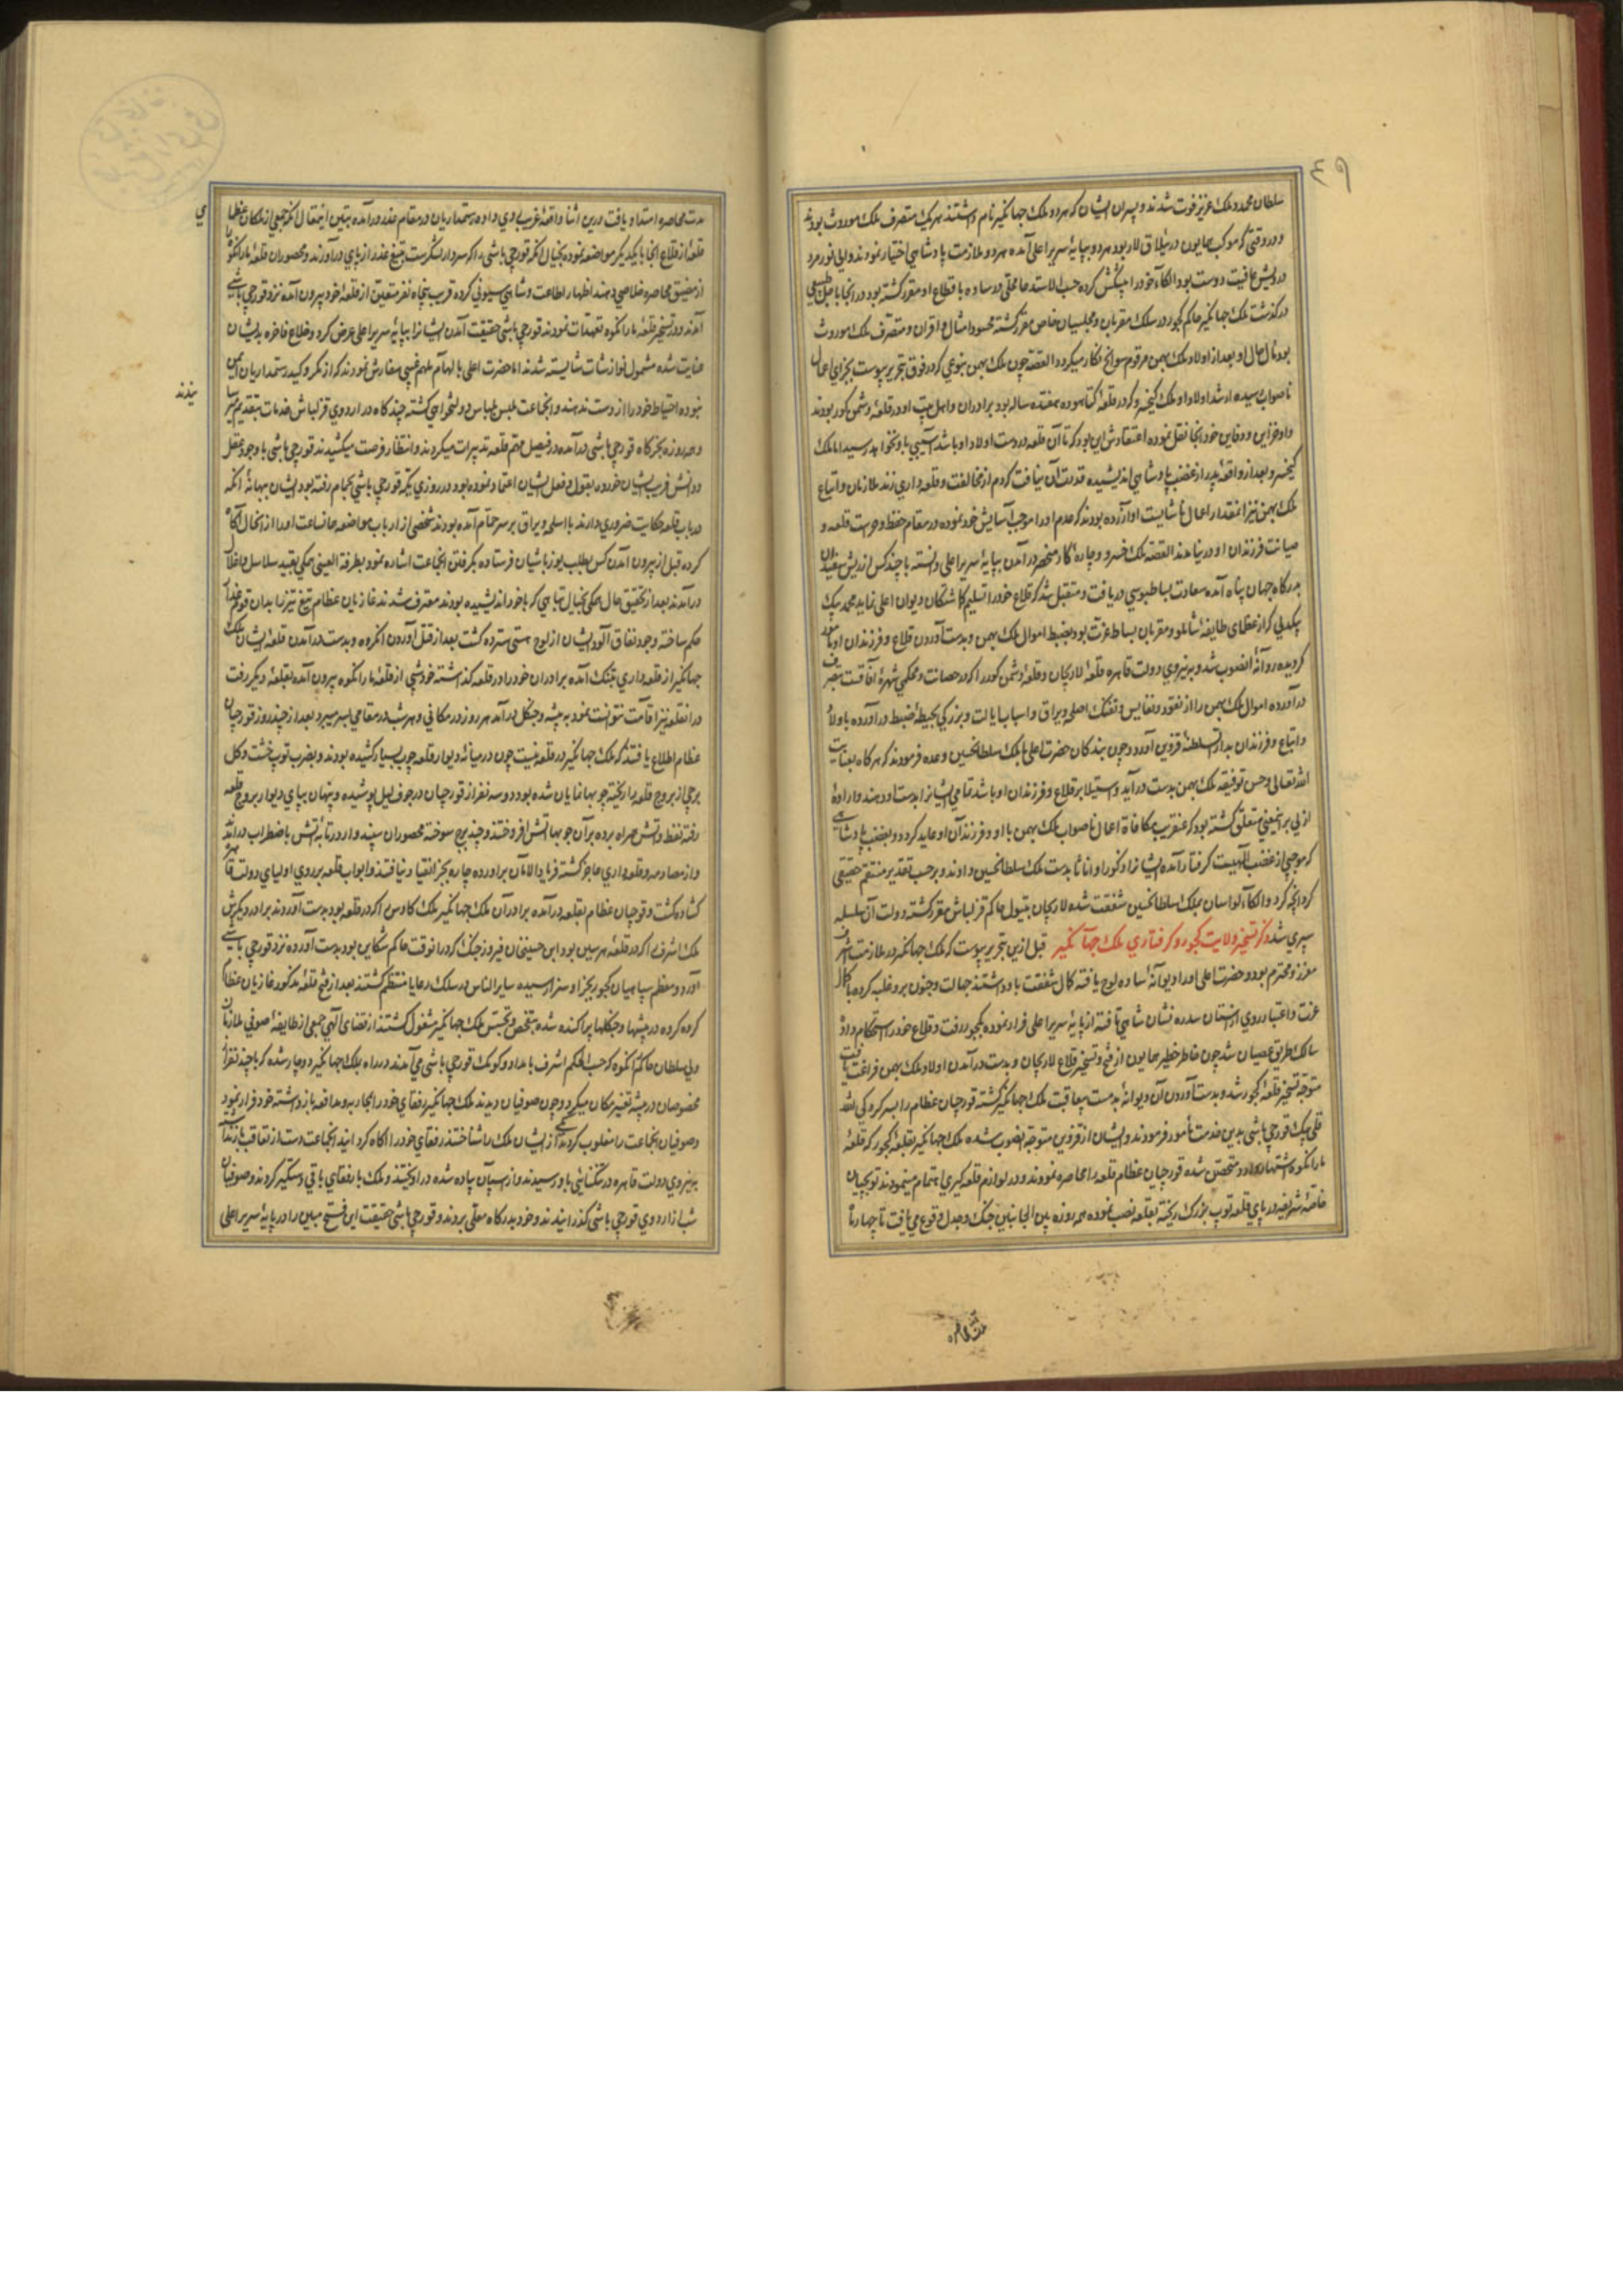 ۴۹
سلطان محمد و ملک عزیز فوت شدند و پسران ایشان که هر دو ملک جهانگیر نام داشتند هر یک متصرف ملک موروث بودند
و در وقتی که موکب همایون در ییلاق لار بود هر دو بپایهٔ سریر اعلی آمده هر دو ملازمت پادشاهی اختیار نمودند والی نور مرد
درویش عافیت دوست بود الکاء خود را پیشکش کرده حسب الاستدعا محلی در ساوه باقطاع او مقرر گشته بود در انجا باجل طبیعی
درگذشت ملک جهانگیر حاکم کجور در سلک مقربان و مجلسیان خاص مقرر گشته محسود امثال و اقران و متصرف ملک موروث
بود مآل حال او بعد از اولاد ملک بهمن مرقوم سوانح نگار میگردد القصه چون ملک بهمن بنوعی که در فوق بتحریر پیوست بجزای اعمال
ناصواب رسیده ارشد اولاد او ملک کیخسرو که در قلعهٔ بوده هفده ساله بود برادران و اهل بیت او در قلعهٔ دشمن کور بودند
و او خزاین و دفاین خود انجا نقل نموده اعتقادش این بود که تا آن قلعه در دست اولاد او باشد آسیبی باو نخواهد رسید اما ملک
کیخسرو بعد از واقعهٔ پدر از غضب پادشاهی اندیشیده قدرت آن نیافت که دم از مخالفت و قلعه داری زند ملازمان و اتباع
ملک بهمن نیز انمقدار از اعمال ناشایست او آزرده بودند که عدم او را موجب آسایش خود نموده در مقام حفظ و حرست قلعه و
صیانت فرزندان او در نیامدند القصه ملک خسرو و چارهٔ کار منحصر در آمدن بپایهٔ سریر اعلی دانسته با چند کس از ریش سفیدان
بدرگاه جهان پناه آمده سعادت بساط بوسی دریافت و متقبل شد که قلاع خود را تسلیم گماشتگان دیوان اعلی نماید محمد بیک
بیکدلی که از عظمای طایفهٔ شاملو و مقربان بساط عزت بود بضبط اموال ملک بهمن و بدست آوردن قلاع و فرزندان او مأمور
گردیده روانهٔ انصوب شد و بنیروی دولت قاهره قلعهٔ لاریجان و قلعهٔ دشمن کور را که در حصانت و محکمی شهرهٔ آفاقست بتصرف
درآورده اموال ملک بهمن را از نقود و نفایس و تفنگ اصلحه و یراق و اسباب ایالت و بزرگی بحیطهٔ ضبط درآورده با اولاد
و اتباع و فرزندان بدار السلطنهٔ قزوین آورد و چون بندگان حضرت اعلی با ملک سلطانحسین وعده فرمودند که هرگاه بعنایت
الله تعالی و حسن توفیقه ملک بهمن بدست درآید و استیلا بر قلاع و فرزندان او باشد تمامی ایشانرا بدست او دهند و ارادهٔ
ازلی بر اینمعنی متعلق گشته بود که عنقریب مکافاة اعمال ناصواب ملک بهمن با او و فرزندان او عاید گردد و بغضب پادشاهی
که موجبی از غضب الهیست گرفتار آمده ایشانرا ذکورا و اناثا بدست ملک سلطانحسین دادند و برحسب تقدیر منتقم حقیقی
کرد انچه کرد و الکاء لواسان بملک سلطانحسین شفقت شده لاریجان بتیول حاکم قزلباش مقرر گشته دولت آن سلسله
سپری شد ذکر تسخیر ولایت کجور و گرفتاری ملک جهانگیر قبل ازین بتحریر پیوست که ملک جهانگیر در ملازمت اشرف
معزز و محترم بود و حضرت اعلی او را دیوانهٔ ساده لوح یافته کمال شفقت باو داشتند جهالت و جنون برو غلبه کرده با کمال
عزت و اعتبار روی از آستان سدره نشان شاهی تافته از پایهٔ سریر اعلی فرار نموده بکجور رفت و قلاع خود را استحکام داده
سالک طریق عصیان شد چون خاطر خطیر همایون از فتح و تسخیر قلاع لاریجان و بدست درآمدن اولاد ملک بهمن فراغت یافت
متوجه تسخیر قلعهٔ کجور شد و بدست آوردن آن دیوانهٔ بدمست بیعاقبت ملک جهانگیر گشته قورچیان عظام را بسرکردگی الله
قلی بیک قورچی باشی بدین خدمت مأمور فرمودند و ایشان از قزوین متوجه انصوب شده ملک جهانگیر بقلعهٔ کجور که بقلعهٔ
مارانکوه اشتهار دارد متحصن شده قورچیان عظام قلعه را محاصره نمودند و در لوازم قلعه گیری اهتمام مینمودند توپچیان
خاصهٔ شریفه در پای قلعه توپ بزرگ ریخته بقلعه نصب نموده همه روزه بین الجانبین جنگ و جدل وقوع می یافت تا چهار ماه
مدت محاصره امتداد یافت درین اثنا واقعهٔ غریبی روی داده رستمداریان در مقام غدر درآمده تبیین اینمقال انکه جمعی از ملکان عظمای
قلعهٔ از قلاع انجا با یکدیگر مواضعه نموده بخیال انکه قورچی باشی را که سردار لشکرست بتیغ غدر از پای درآورند و محصوران قلعهٔ مارانکوه
از مضیق محاصره خلاصی دهند اظهار اطاعت و شاهی سیونی کرده قریب پنجاه نفر متعین از قلعهٔ خود بیرون آمده نزد قورچی باشی
آمدند و در تسخیر قلعهٔ مارانکوه تعهدات نمودند قورچی باشی حقیقت آمدن ایشانرا بپایهٔ سریر اعلی عرض کرد و خلاع فاخره بدیشان
عنایت شده مشمول نوازشات شایسته شدند اما حضرت اعلی بالهام ملهم غیبی سفارش نمودند که از مکر و کید رستمداریان ایمن
نبوده احتیاط خود را از دست ندهند و انجماعت ملبس بلباس دولتخواهی گشته چند گاه در اردوی قزلباش خدمات بتقدیم میرسانیدند
و همه روزه بخرگاه قورچی باشی درآمده در فیصل مهم قلعه تدبیرات میکردند و انتظار فرصت میکشیدند قورچی باشی با وجود عقل
و دانش فریب ایشان خورده بقول و فعل ایشان اعتماد نموده بود در روزی که قورچی باشی بحمام رفته بود ایشان ببهانهٔ آنکه
در باب قلعه حکایت ضروری دارند با اسلحه و یراق بر سر حمام آمده بودند شخصی از ارباب مواضعه همانساعت او را از انحال آگاه
کرده قبل از بیرون آمدن کس بطلب یوزباشیان فرستاده بگرفتن انجماعت اشاره نمود بطرفة العینی همگی بقید سلاسل و اغلال
درآمدند بعد از تحقیق حال همگی بخیال تباهی که با خود اندیشیده بودند معترف شدند غازیان عظام تیغ تیز را بدان قوم غدار
حکم ساخته وجود نفاق آلود ایشان از لوح هستی سترده گشت بعد از قتل آوردن انگروه و بدست درآمدن قلعهٔ ایشان ملک
جهانگیر از قلعه داری بتنگ آمده برادران خود را در قلعه گذاشته خود شبی از قلعهٔ مارانکوه بیرون آمده بقلعهٔ دیگر رفت
در انقلعه نیز اقامت نتوانست نمود به بیشه و جنگل درآمد هر روز در مکانی و هر شب در مقامی بسر میبرد بعد از چند روز قورچیان
عظام اطلاع یافتند که ملک جهانگیر در قلعه نیست چون در میانهٔ دیوار قلعه چوب بسیار کشیده بودند و بضرب توپ خشت و گل
برجی از بروج قلعه را ریخته چوبها نمایان شده بود دو سه نفر از قورچیان در جوف لیل پوشیده و پنهان بپای دیوار بروج قلعه
رفته نفط و آتش همراه برده بر آن چوبها آتش افروختند و چند برج سوخته محصوران سپند وار در تابهٔ آتش باضطراب درآمدند
و از مصادمه و قلعه داری عاجز گشته فریاد الامان برآورده چاره بجز انقیاد نیافتند و ابواب قلعه بر روی اولیای دولت قاهره
گشاده گشت و قورچیان عظام بقلعه درآمده برادران ملک جهانگیر ملک کاوس را که در قلعه بود بدست آوردند برادر دیگرش
ملک اشرف را که در قلعهٔ هرسین بود ابن حسینخان فیروز جنگ که در انوقت حاکم شکابن بود بدست آورده نزد قورچی باشی
آورد و معظم سپاهیان کجور بجزا و سزا رسیده سایر الناس در سلک رعایا منتظم گشتند بعد از فتح قلعهٔ مذکور غازیان عظام
گروه گروه در بیشها و جنگلها پراکنده شده بتفحص و تجسس ملک جهانگیر مشغول گشتند از قضای الهی جمعی از طایفهٔ صوفی ملازمان
ولی سلطان حاکم رانکوه که حسب الحکم اشرف بامداد و کومک قورچی باشی می آمدند در راه بملک جهانگیر دوچار شده که با چند نفر از
مخصوصان در بیشه تغییر مکان میکرد و چون صوفیان دیدند ملک جهانگیر رفقای خود را بمحاربه و مدافعه بازداشته خود فرار نمود
و صوفیان انجماعت را مغلوب کردند یکی از ایشان ملک را شناخته رفقای خود را آگاه گردانید انجماعت دست از تعاقب باز نداشته
بنیروی دولت قاهره در تنگنائی باو رسیدند و از اسپان پیاده شده درآویختند و ملک با رفقای باقی دستگیر کردند و صوفیان
شب از اردوی قورچی باشی گذرانیدند و خود بدرگاه معلی بردند و قورچی باشی حقیقت این فتح مبین را در پایهٔ سریر اعلی